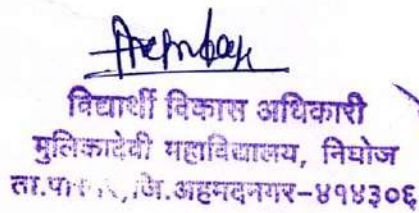 विद्यार्थी विकास अधिकारी
मुलिकादेवी महाविद्यालय, निघोज
जि.अहमदनगर-४१४३०६